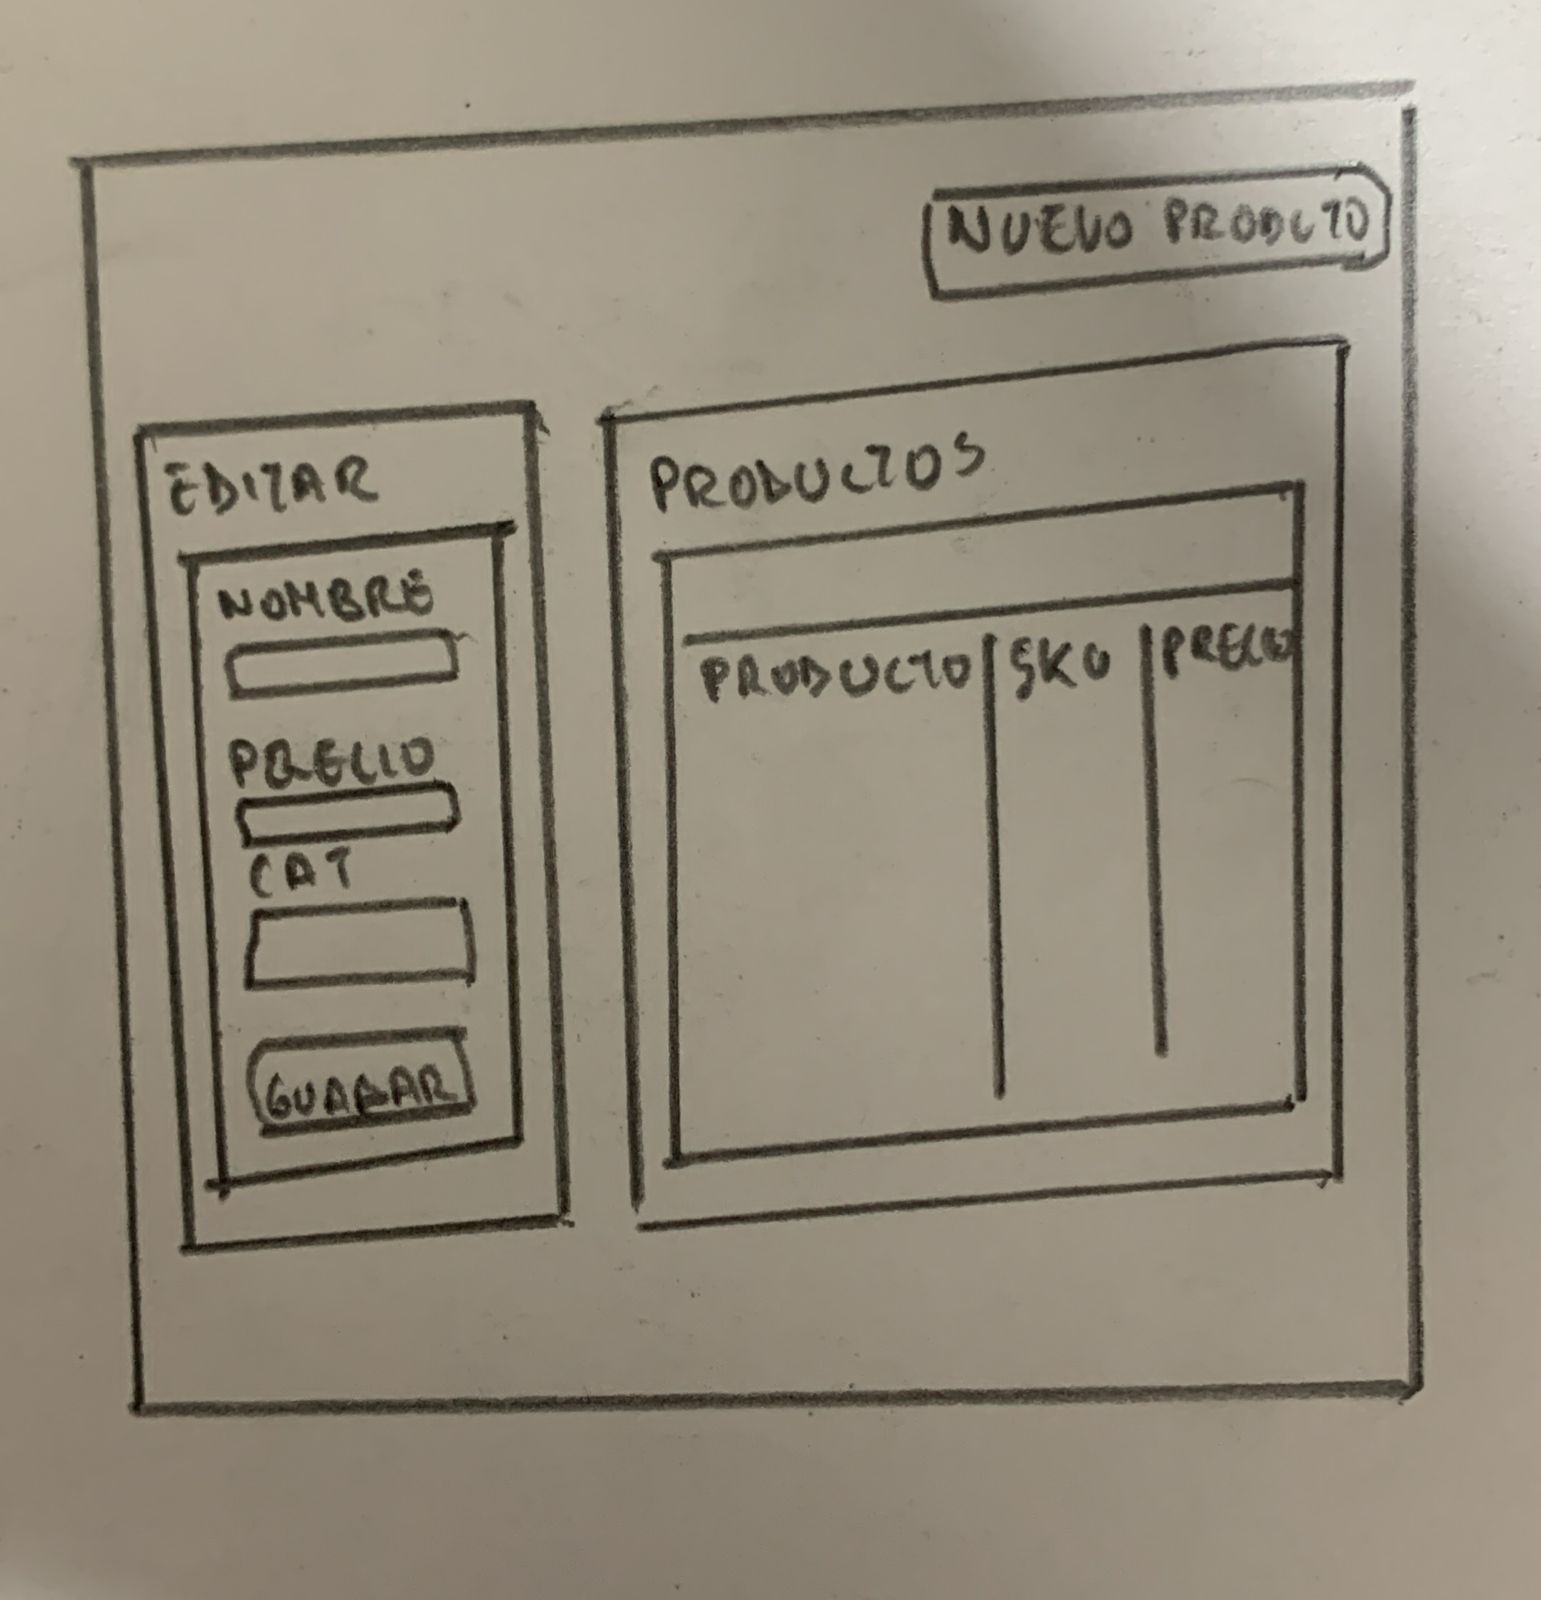 NUEVO PRODUCTO
EDITAR
NOMBRE
PRECIO
CAT
GUARAR
PRODUCTOS
PRODUCTO SKU PRECIO